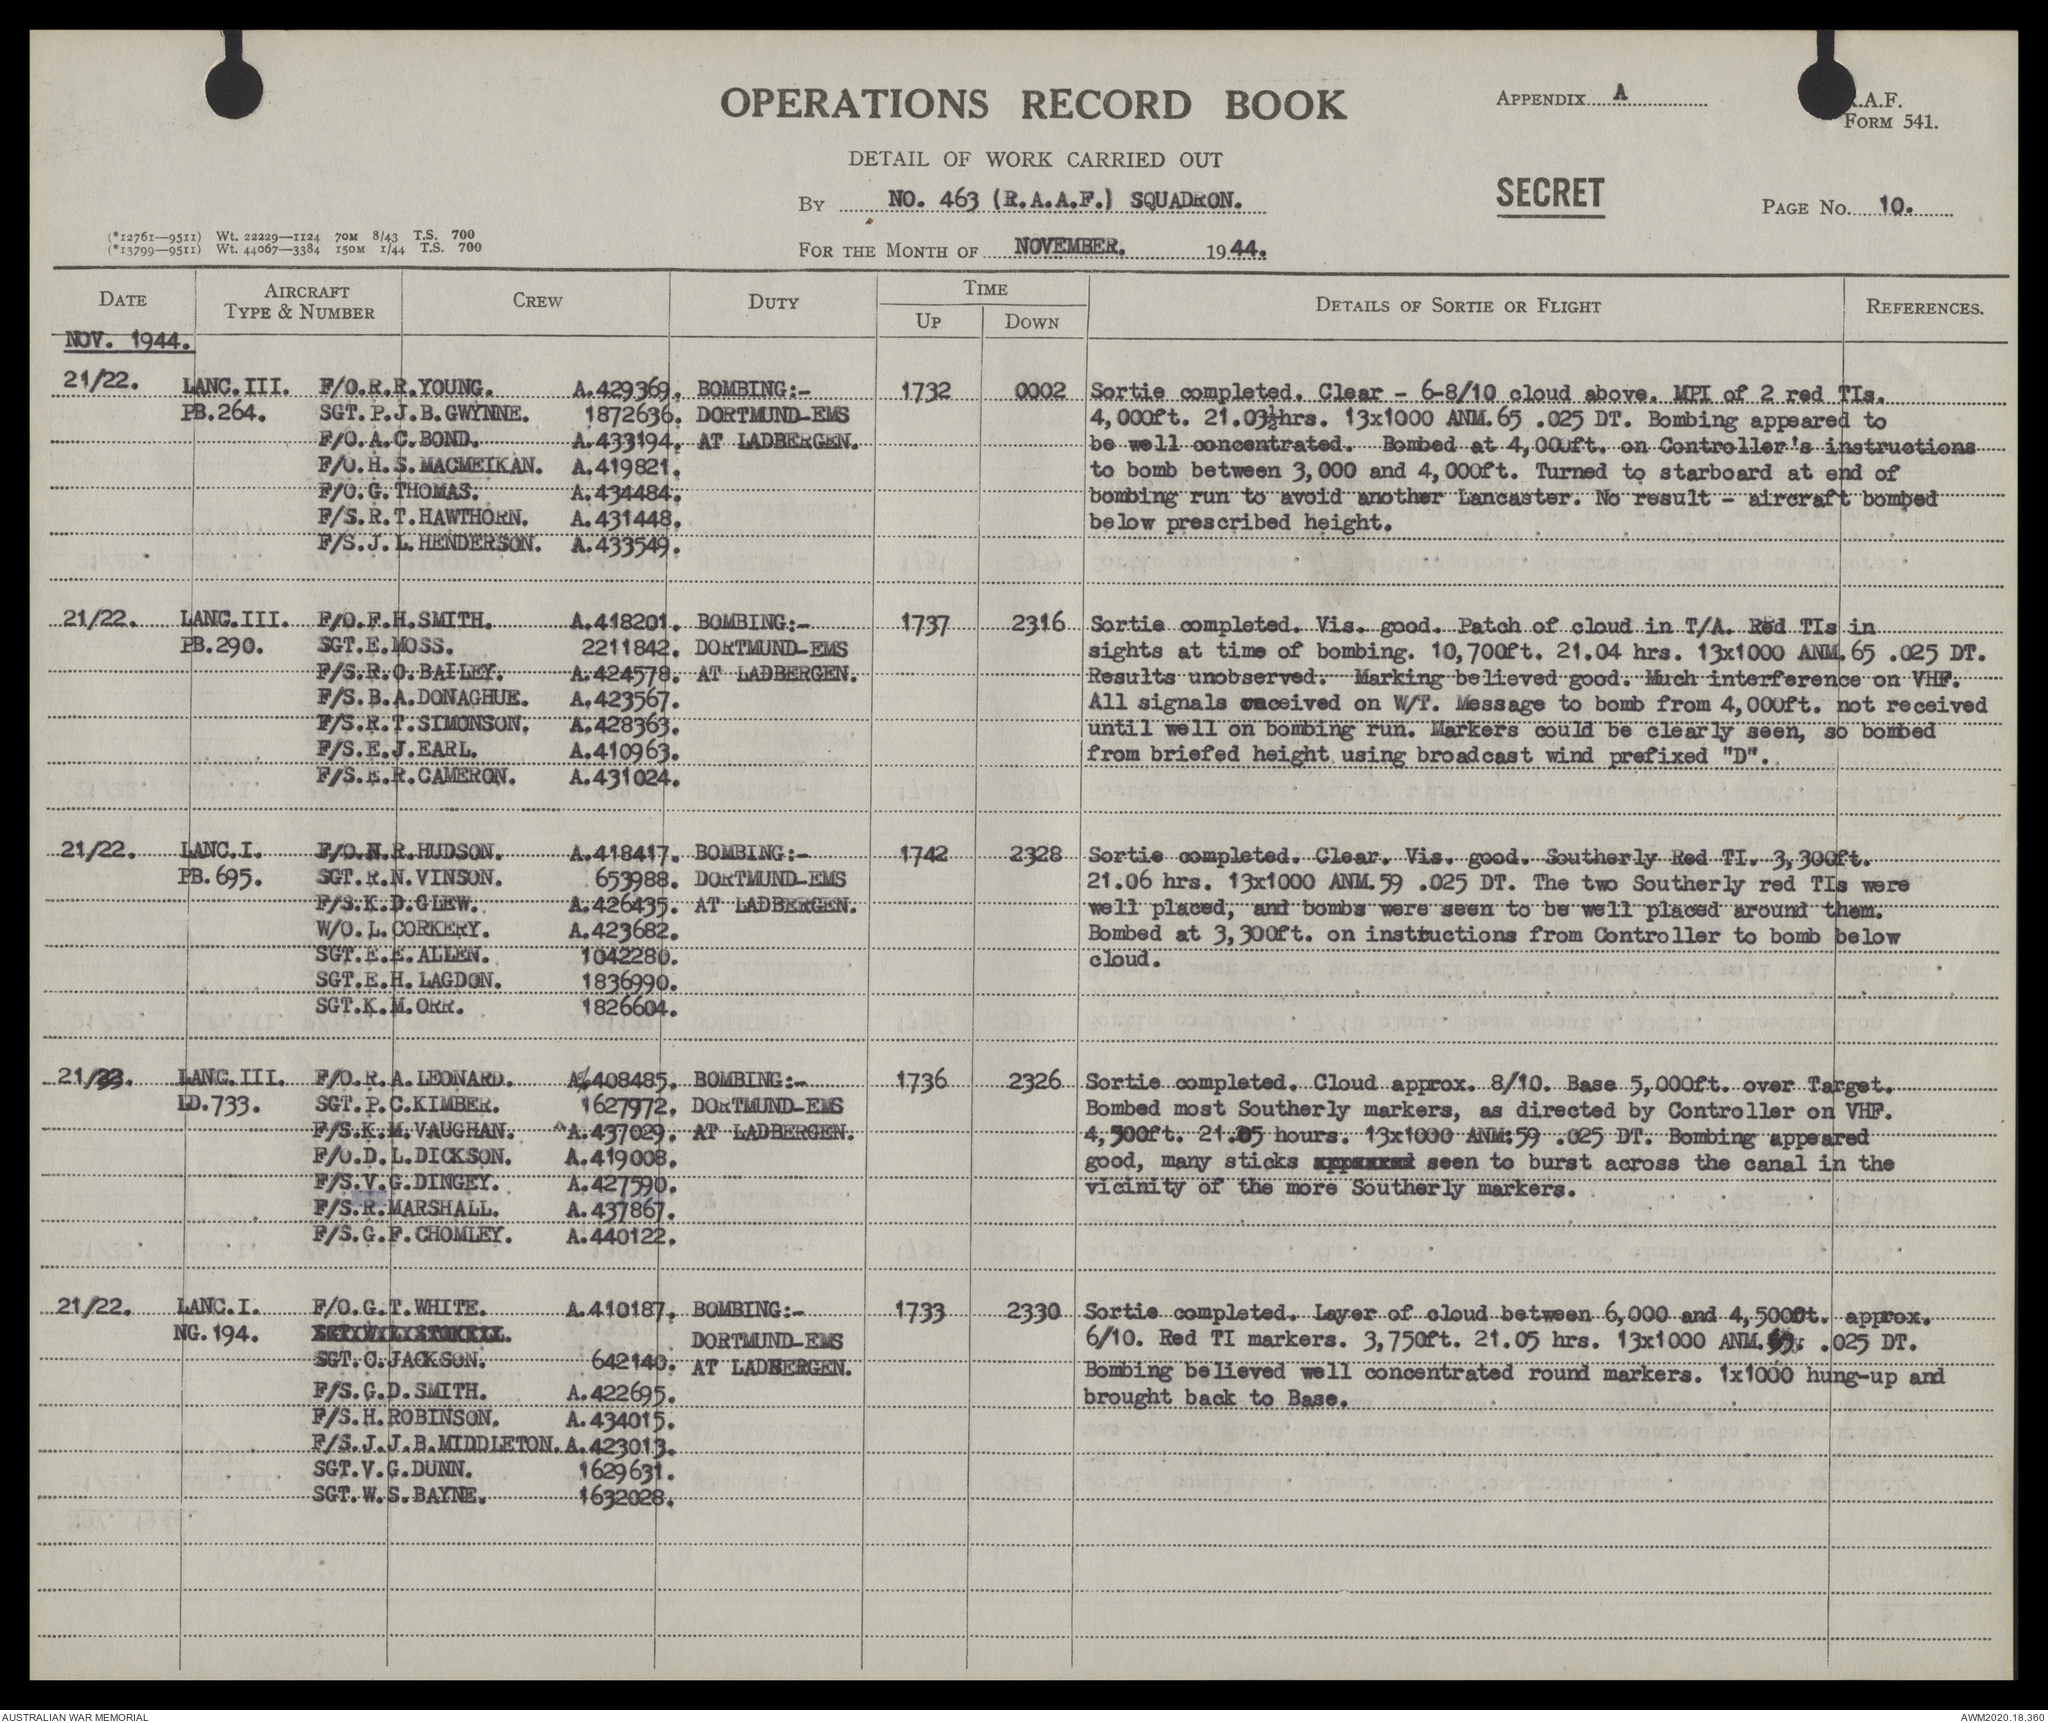 OPERATIONS RECORD BOOK
APPENDIX A
R.A.F.
FORM 541.
DETAIL OF WORK CARRIED OUT
BY NO. 463 (R.A.A.F.) SQUADRON.
SECRET
PAGE NO. 10.
(*12761—9511) Wt. 22229—1124 70M 8/43 T.S. 700
(*13799—9511) Wt. 44067—3384 150M 1/44 T.S. 700
FOR THE MONTH OF NOVEMBER. 1944.
DATE AIRCRAFT TYPE & NUMBER CREW DUTY TIME UP DOWN DETAILS OF SORTIE OR FLIGHT REFERENCES.
NOV. 1944.
21/22. LANC.III. F/O.R.R.YOUNG. A.429369. BOMBING:- 1732 0002 Sortie completed. Clear - 6-8/10 cloud above. MPI of 2 red TIs.
PB.264. SGT.P.J.B.GWYNNE. 1872636. DORTMUND-EMS 4,000ft. 21.03½hrs. 13x1000 ANM.65 .025 DT. Bombing appeared to
F/O.A.C.BOND. A.433194. AT LADBERGEN. be well concentrated. Bombed at 4,000ft. on Controller's instructions
F/O.H.S.MACMEIKAN. A.419821. to bomb between 3,000 and 4,000ft. Turned to starboard at end of
F/O.G.THOMAS. A.434484. bombing run to avoid another Lancaster. No result - aircraft bombed
F/S.R.T.HAWTHORN. A.431448. below prescribed height.
F/S.J.L.HENDERSON. A.433549.
21/22. LANC.III. F/O.F.H.SMITH. A.418201. BOMBING:- 1737 2316 Sortie completed. Vis. good. Patch of cloud in T/A. Red TIs in
PB.290. SGT.E.MOSS. 2211842. DORTMUND-EMS sights at time of bombing. 10,700ft. 21.04 hrs. 13x1000 ANM.65 .025 DT.
F/S.R.O.BAILEY. A.424578. AT LADBERGEN. Results unobserved. Marking believed good. Much interference on VHF.
F/S.B.A.DONAGHUE. A.423567. All signals received on W/T. Message to bomb from 4,000ft. not received
F/S.R.T.SIMONSON. A.428363. until well on bombing run. Markers could be clearly seen, so bombed
F/S.E.J.EARL. A.410963. from briefed height using broadcast wind prefixed "D".
F/S.E.R.CAMERON. A.431024.
21/22. LANC.I. F/O.N.R.HUDSON. A.418417. BOMBING:- 1742 2328 Sortie completed. Clear. Vis. good. Southerly Red TI. 3,300ft.
PB.695. SGT.R.N.VINSON. 653988. DORTMUND-EMS 21.06 hrs. 13x1000 ANM.59 .025 DT. The two Southerly red TIs were
F/S.K.D.GLEW. A.426435. AT LADBERGEN. well placed, and bombs were seen to be well placed around them.
W/O.L.CORKERY. A.423682. Bombed at 3,300ft. on instructions from Controller to bomb below
SGT.E.E.ALLEN. 1042280. cloud.
SGT.E.H.LAGDON. 1836990.
SGT.K.M.ORR. 1826604.
21/22. LANC.III. F/O.R.A.LEONARD. A.408485. BOMBING:- 1736 2326 Sortie completed. Cloud approx. 8/10. Base 5,000ft. over Target.
LD.733. SGT.P.C.KIMBER. 1627972. DORTMUND-EMS Bombed most Southerly markers, as directed by Controller on VHF.
F/S.K.M.VAUGHAN. A.437029. AT LADBERGEN. 4,500ft. 21.05 hours. 13x1000 ANM:59 .025 DT. Bombing appeared
F/O.D.L.DICKSON. A.419008. good, many sticks seen to burst across the canal in the
F/S.V.G.DINGEY. A.427590. vicinity of the more Southerly markers.
F/S.R.MARSHALL. A.437867.
F/S.G.F.CHOMLEY. A.440122.
21/22. LANC.I. F/O.G.T.WHITE. A.410187. BOMBING:- 1733 2330 Sortie completed. Layer of cloud between 6,000 and 4,500ft. approx.
NG.194. DORTMUND-EMS 6/10. Red TI markers. 3,750ft. 21.05 hrs. 13x1000 ANM. .025 DT.
SGT.C.JACKSON. 642140. AT LADBERGEN. Bombing believed well concentrated round markers. 1x1000 hung-up and
F/S.G.D.SMITH. A.422695. brought back to Base.
F/S.H.ROBINSON. A.434015.
F/S.J.J.B.MIDDLETON. A.423013.
SGT.V.G.DUNN. 1629631.
SGT.W.S.BAYNE. 1632028.
AUSTRALIAN WAR MEMORIAL
AWM2020.18.360